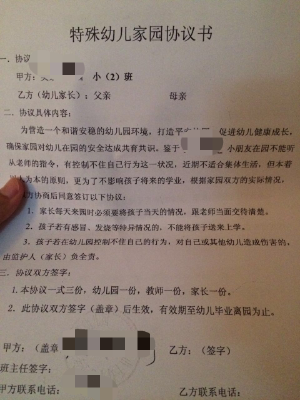 特殊幼儿家园协议书
一、协议
甲方: 小（2）班
乙方（幼儿家长）：父亲 母亲
二、协议具体内容：
为营造一个和谐安稳的幼儿园环境，打造平 促进幼儿健康成长，
确保家园对幼儿在园的安全达成共育共识。鉴于 小朋友在园不能听
从老师的指令，有控制不住自己行为这一状况，近期不适合集体生活，但本着
以人为本的原则，更为了不影响孩子将来的学业，根据家园双方的实际情况，
协商后同意签订以下协议：
1、家长每天来园时必须要将孩子当天的情况，跟老师当面交待清楚。
2、孩子若有感冒、发烧等特异情况的，不能将孩子送来上学。
3、孩子若在幼儿园控制不住自己的行为，对自己或其他幼儿造成伤害的，
由监护人（家长）负全责。
三、协议双方签字：
1.本协议一式三份，幼儿园一份，教师一份，家长一份。
2、此协议双方签字（盖章）后生效，有效期至幼儿毕业离园为止。
甲方：（盖章 乙方：（签字）
班主任签字：
甲方联系电话： 乙方联系电话：